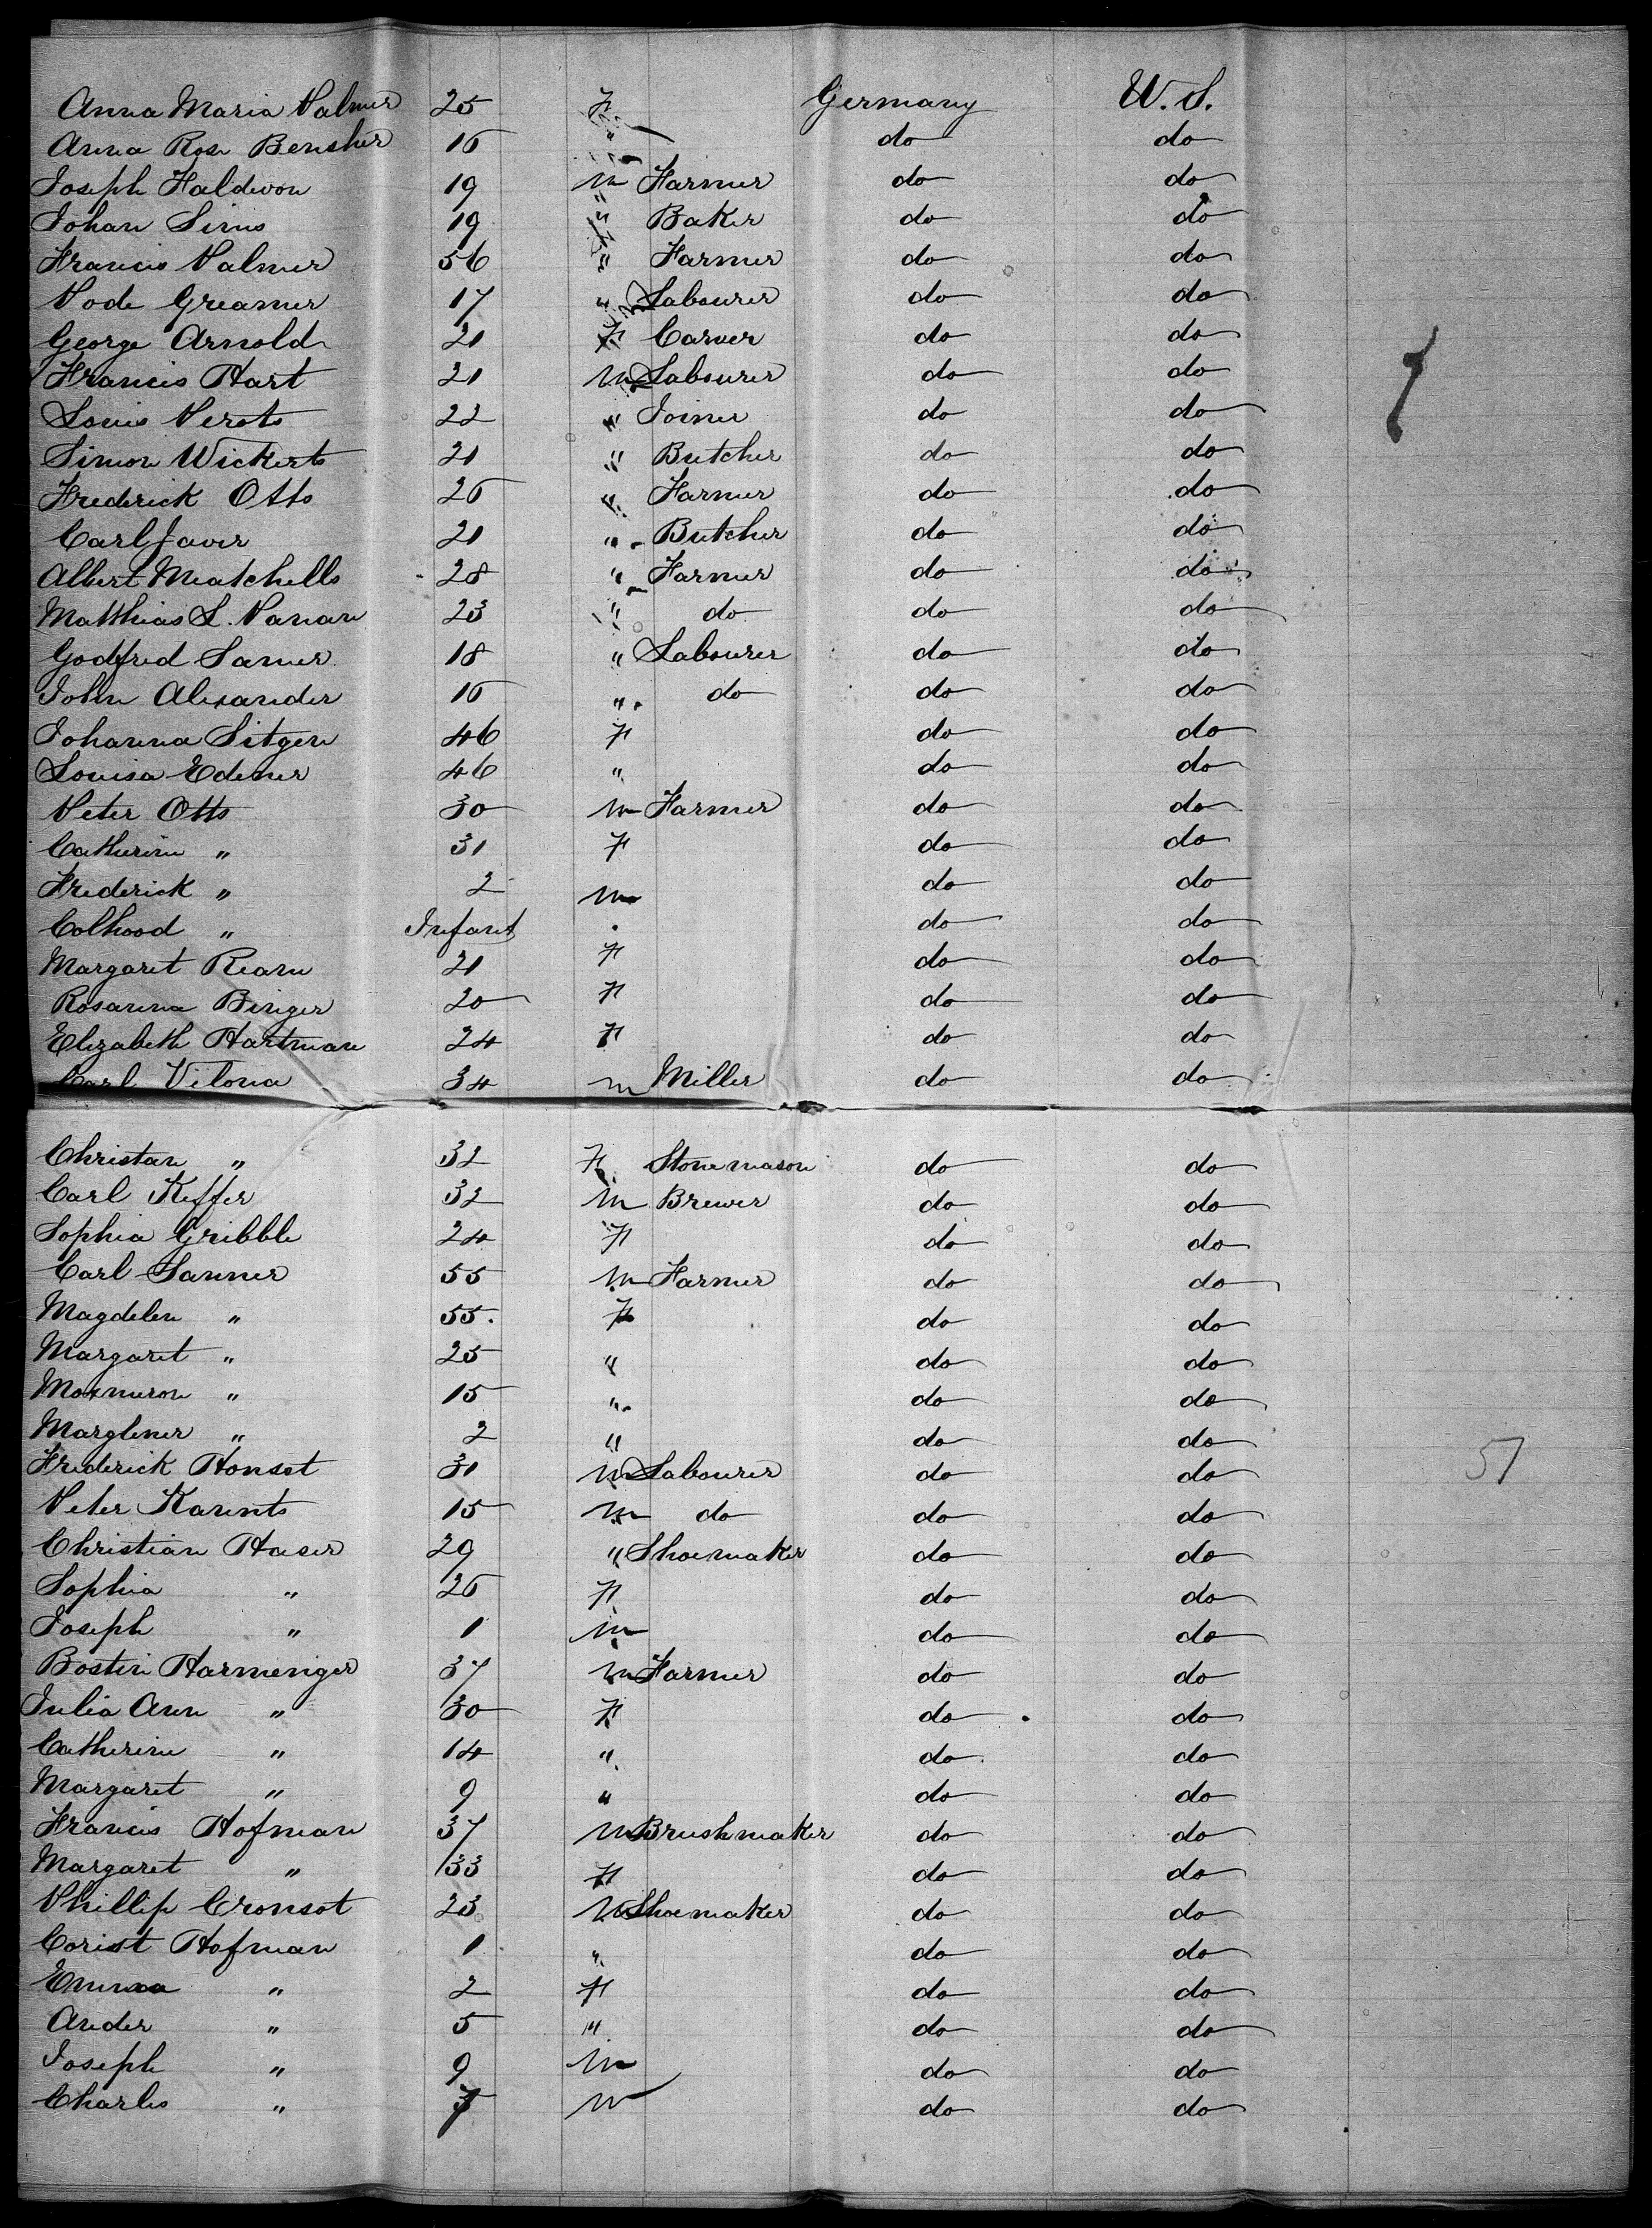 Anna Maria Palmer 25 F Germany U.S.
Anna Rose Bensher 16 " do do
Joseph Haldwon 19 m Farmer do do
Johan Sims 19 " Baker do do
Francis Palmer 56 " Farmer do do
Pode Greamer 17 " Labourer do do
George Arnold 21 F Carver do do
Francis Hart 21 m Labourer do do
Louis Perots 22 " Joiner do do
Simon Wickerts 21 " Butcher do do
Frederick Otto 26 " Farmer do do
Carl Javer 21 " Butcher do do
Albert Matchells 28 " Farmer do do
Matthias L. Panan 23 " do do do
Godfred Samer 18 " Labourer do do
John Alexander 16 " do do do
Johanna Sitgen 46 F do do
Louisa Edemer 46 " do do
Peter Otto 30 m Farmer do do
Catherine " 31 F do do
Frederick " 2 m do do
Colhood " Infant do do
Margaret Reann 21 F do do
Rosanna Binger 20 F do do
Elizabeth Hartman 24 F do do
Carl Vilona 34 m Miller do do
Christan " 32 F Stonemason do do
Carl Keffer 32 m Brewer do do
Sophia Gribble 24 F do do
Carl Sanner 55 m Farmer do do
Magdelen " 55. F do do
Margaret " 25 " do do
Moxmeron " 15 " do do
Marglener " 2 " do do
Frederick Honsot 31 m Labourer do do
51
Peter Karents 15 m do do do
Christian Haser 29 " Shoemaker do do
Sophia " 26 F do do
Joseph " 1 m do do
Bostin Harmenger 37 m Farmer do do
Julia Ann " 30 F do do
Catherine " 14 " do do
Margaret " 9 " do do
Francis Hofman 37 m Brushmaker do do
Margaret " 33 F do do
Phillip Cronsot 23 m Shoemaker do do
Corist Hofman 1 " do do
Emma " 2 F do do
Ander " 5 " do do
Joseph " 9 m do do
Charles " m do do